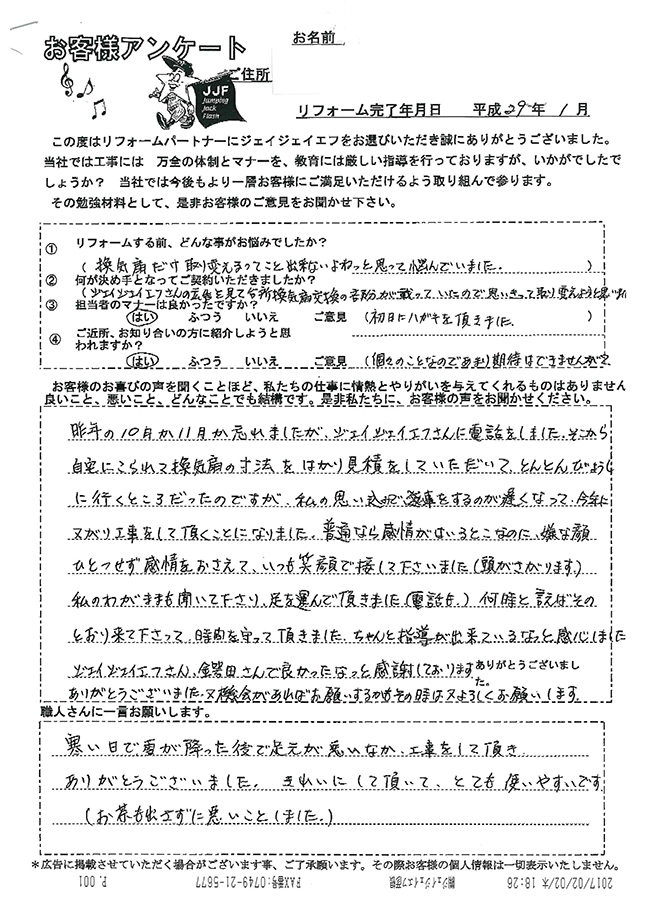 お客様アンケート
お名前
ご住所
JJF
Jumping
Jack
Flash
リフォーム完了年月日 平成29年 1月
この度はリフォームパートナーにジェイジェイエフをお選びいただき誠にありがとうございました。
当社では工事には 万全の体制とマナーを、教育には厳しい指導を行っておりますが、いかがでしたで
しょうか? 当社では今後もより一層お客様にご満足いただけるよう取り組んで参ります。
その勉強材料として、是非お客様のご意見をお聞かせ下さい。
① リフォームする前、どんな事がお悩みでしたか?
(換気扇だけ取り変えるってこと出来ないよねっと思って悩んでいました.)
② 何が決め手となってご契約いただきましたか?
(ジェイジェイエフさんの広告を見て台所換気扇交換の部分が載っていたので思いきって取り変えようと思い
③ 担当者のマナーは良かったですか?
はい ふつう いいえ ご意見 (初日にハガキを頂きました.)
④ ご近所、お知り合いの方に紹介しようと思
われますか?
はい ふつう いいえ ご意見 (個々のことなのであまり期待はできませんが
お客様のお喜びの声を聞くことほど、私たちの仕事に情熱とやりがいを与えてくれるものはありません
良いこと、悪いこと、どんなことでも結構です。是非私たちに、お客様の声をお聞かせください。
昨年の10月か11月か忘れましたが、ジェイジェイエフさんに電話をしました.そこから
自宅にこられて換気扇の寸法をはかり見積をしていただいて、とんとんびょうし
に行くところだったのですが、私の思い込で返事をするのが遅くなって、今年に
又がり工事をして頂くことになりました.普通なら感情がはいるとこなのに、嫌な顔
ひとつせず感情をおさえて、いつも笑顔で接して下さいました(頭がさがります)
私のわがままも聞いて下さり、足を運んで頂きました(電話も.)何時と言えばその
とおり来て下さって、時間を守って頂きました.ちゃんと指導が出来ているなっと感心しました
ジェイジェイエフさん、さんで良かったなっと感謝しております ありがとうございまし
た。
ありがとうございました.又機会があればお願いするかもその時は又よろしくお願いします
職人さんに一言お願いします。
寒い日で雪が降った後で足元が悪いなか、工事をして頂き
ありがとうございました. きれいにして頂いて、とても使いやすいです
(お茶も出さずに悪いことしました.)
*広告に掲載させていただく場合がございます事、ご了承願います。その際お客様の個人情報は一切表示いたしません。
2017/02/02/木 18:26 FAX番号:0749-21-5677 P.001